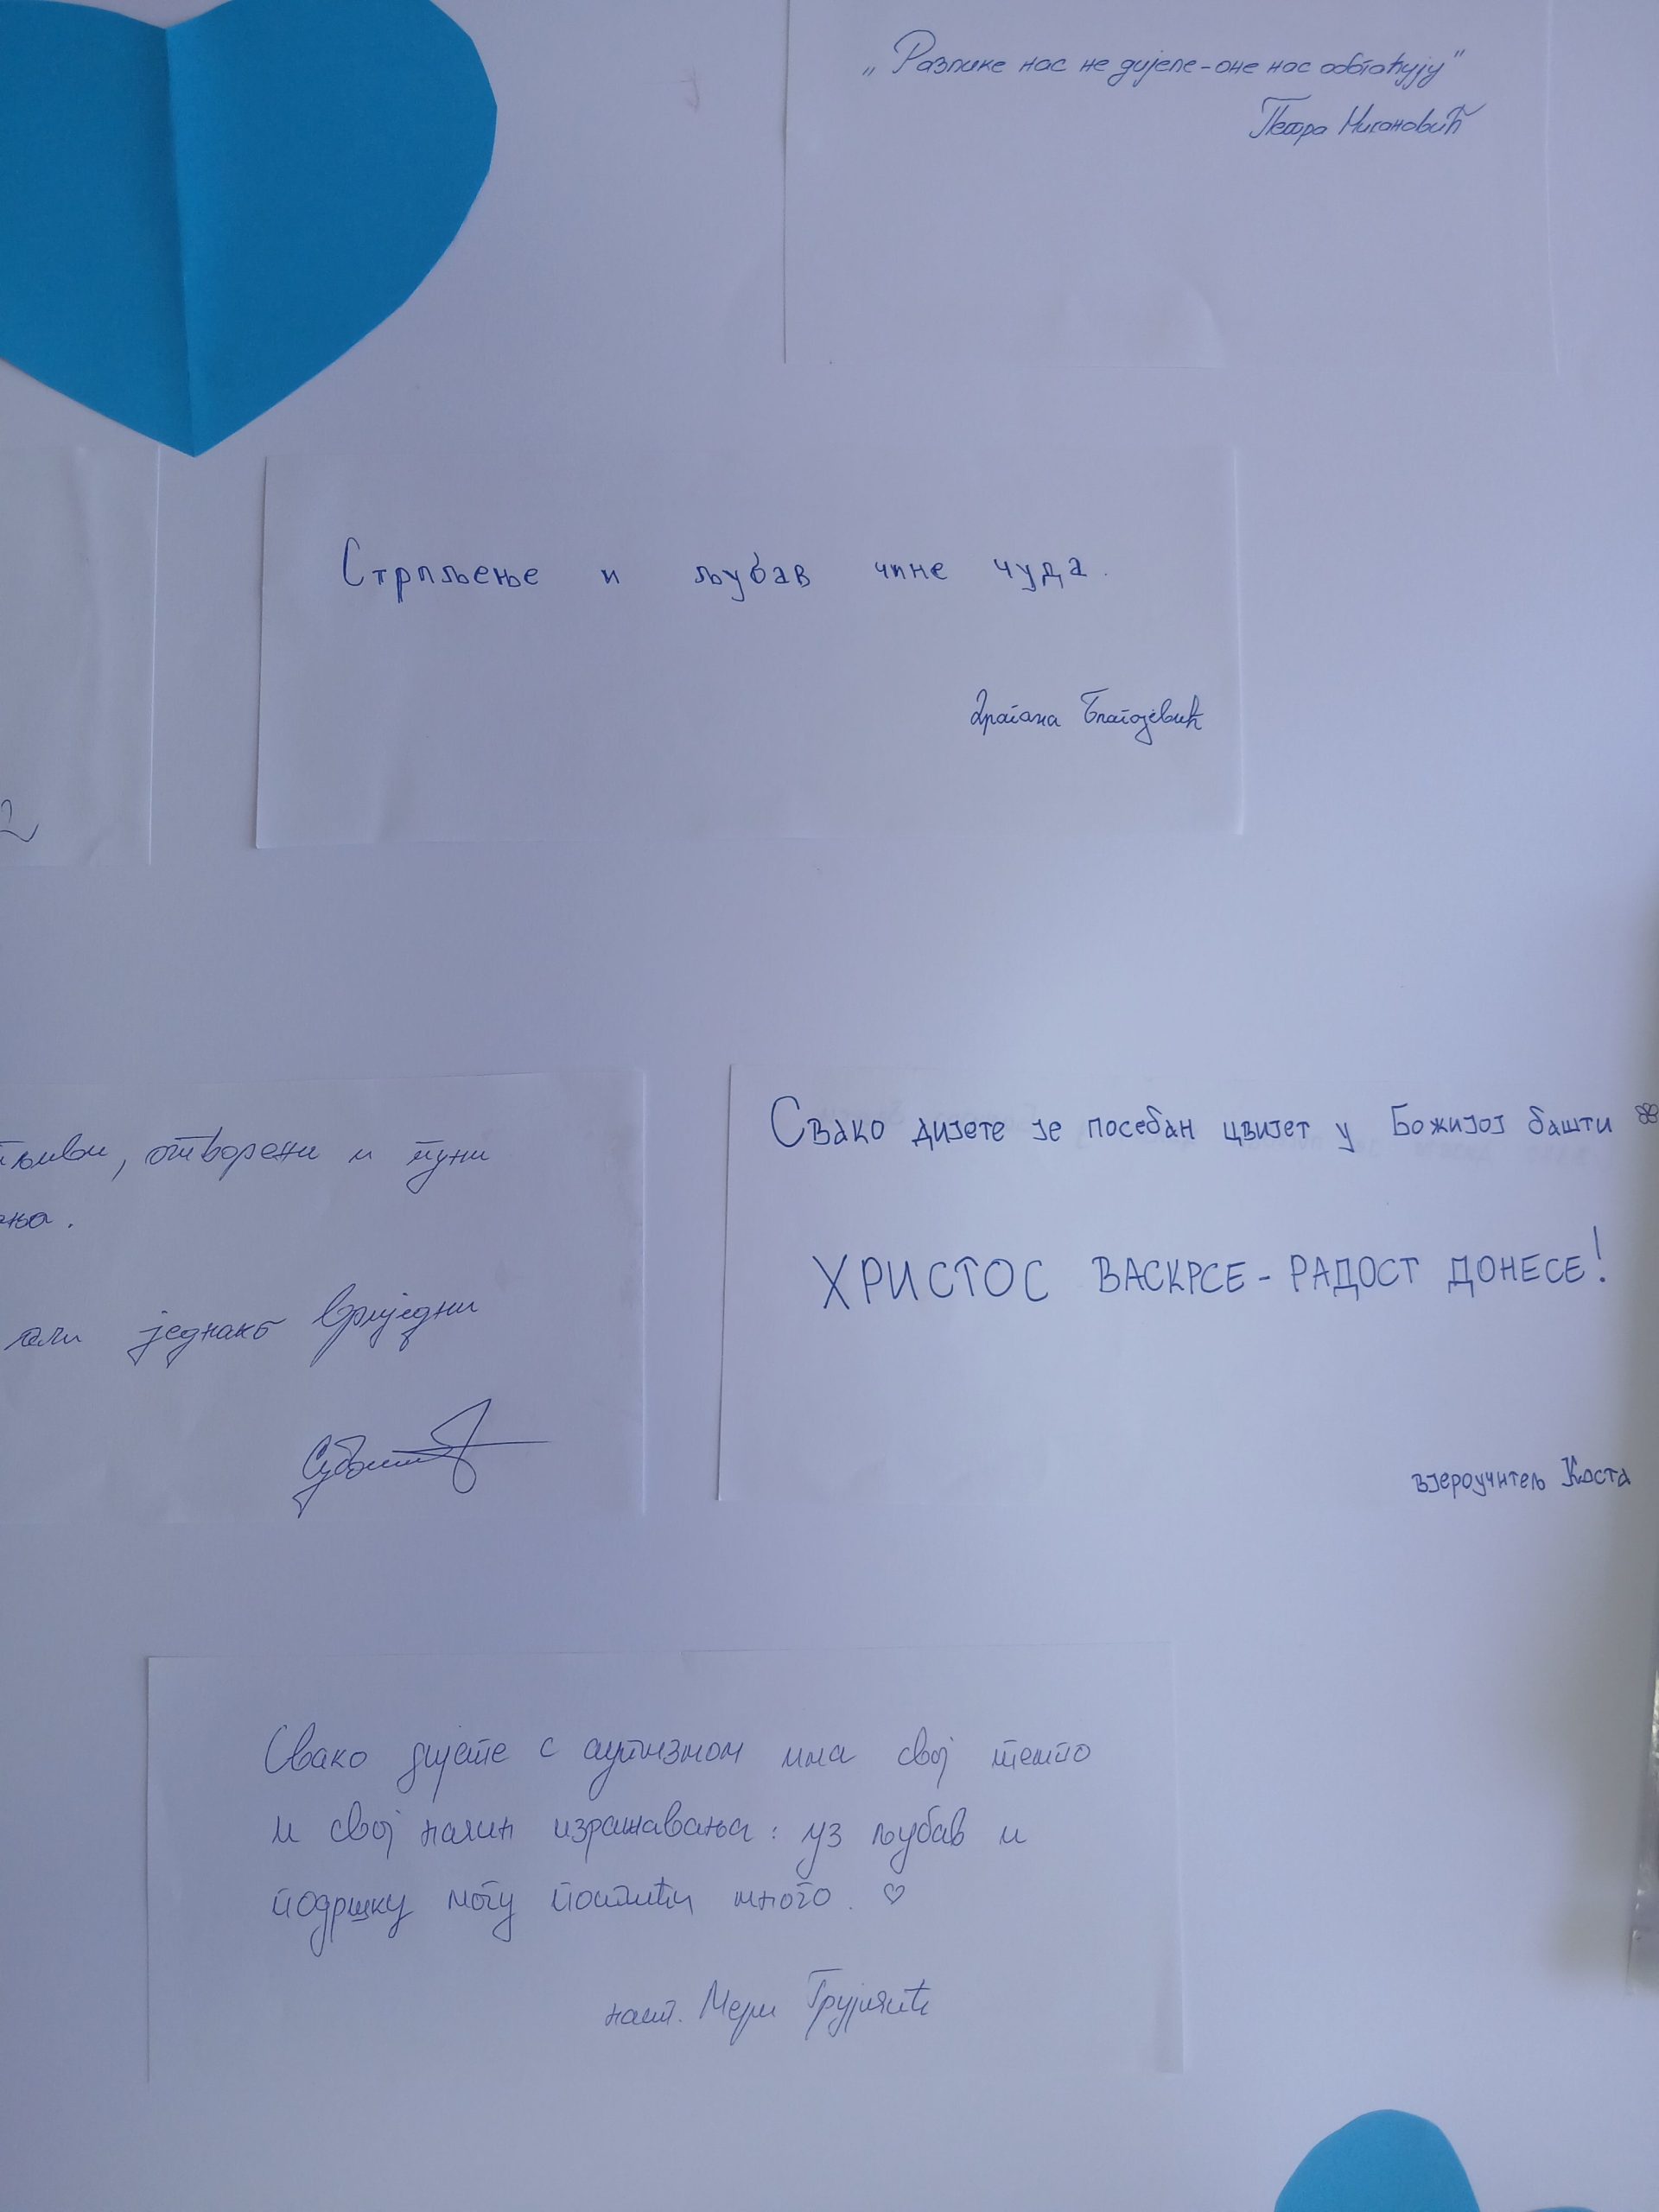 „Разлике нас не дијеле - оне нас обогаћују"
Петра Нигановић
Стрпљење и љубав чине чуда.
Драгана Благојевић
отворени и пуни
али једнако вриједни
Свако дијете је посебан цвијет у Божијој башти
ХРИСТОС ВАСКРСЕ - РАДОСТ ДОНЕСЕ!
вјероучитељ Коста
Свако дијете с аутизмом има свој темпо
и свој начин изражавања: уз љубав и
подршку могу постићи много. ♡
наст. Мери Грујичић